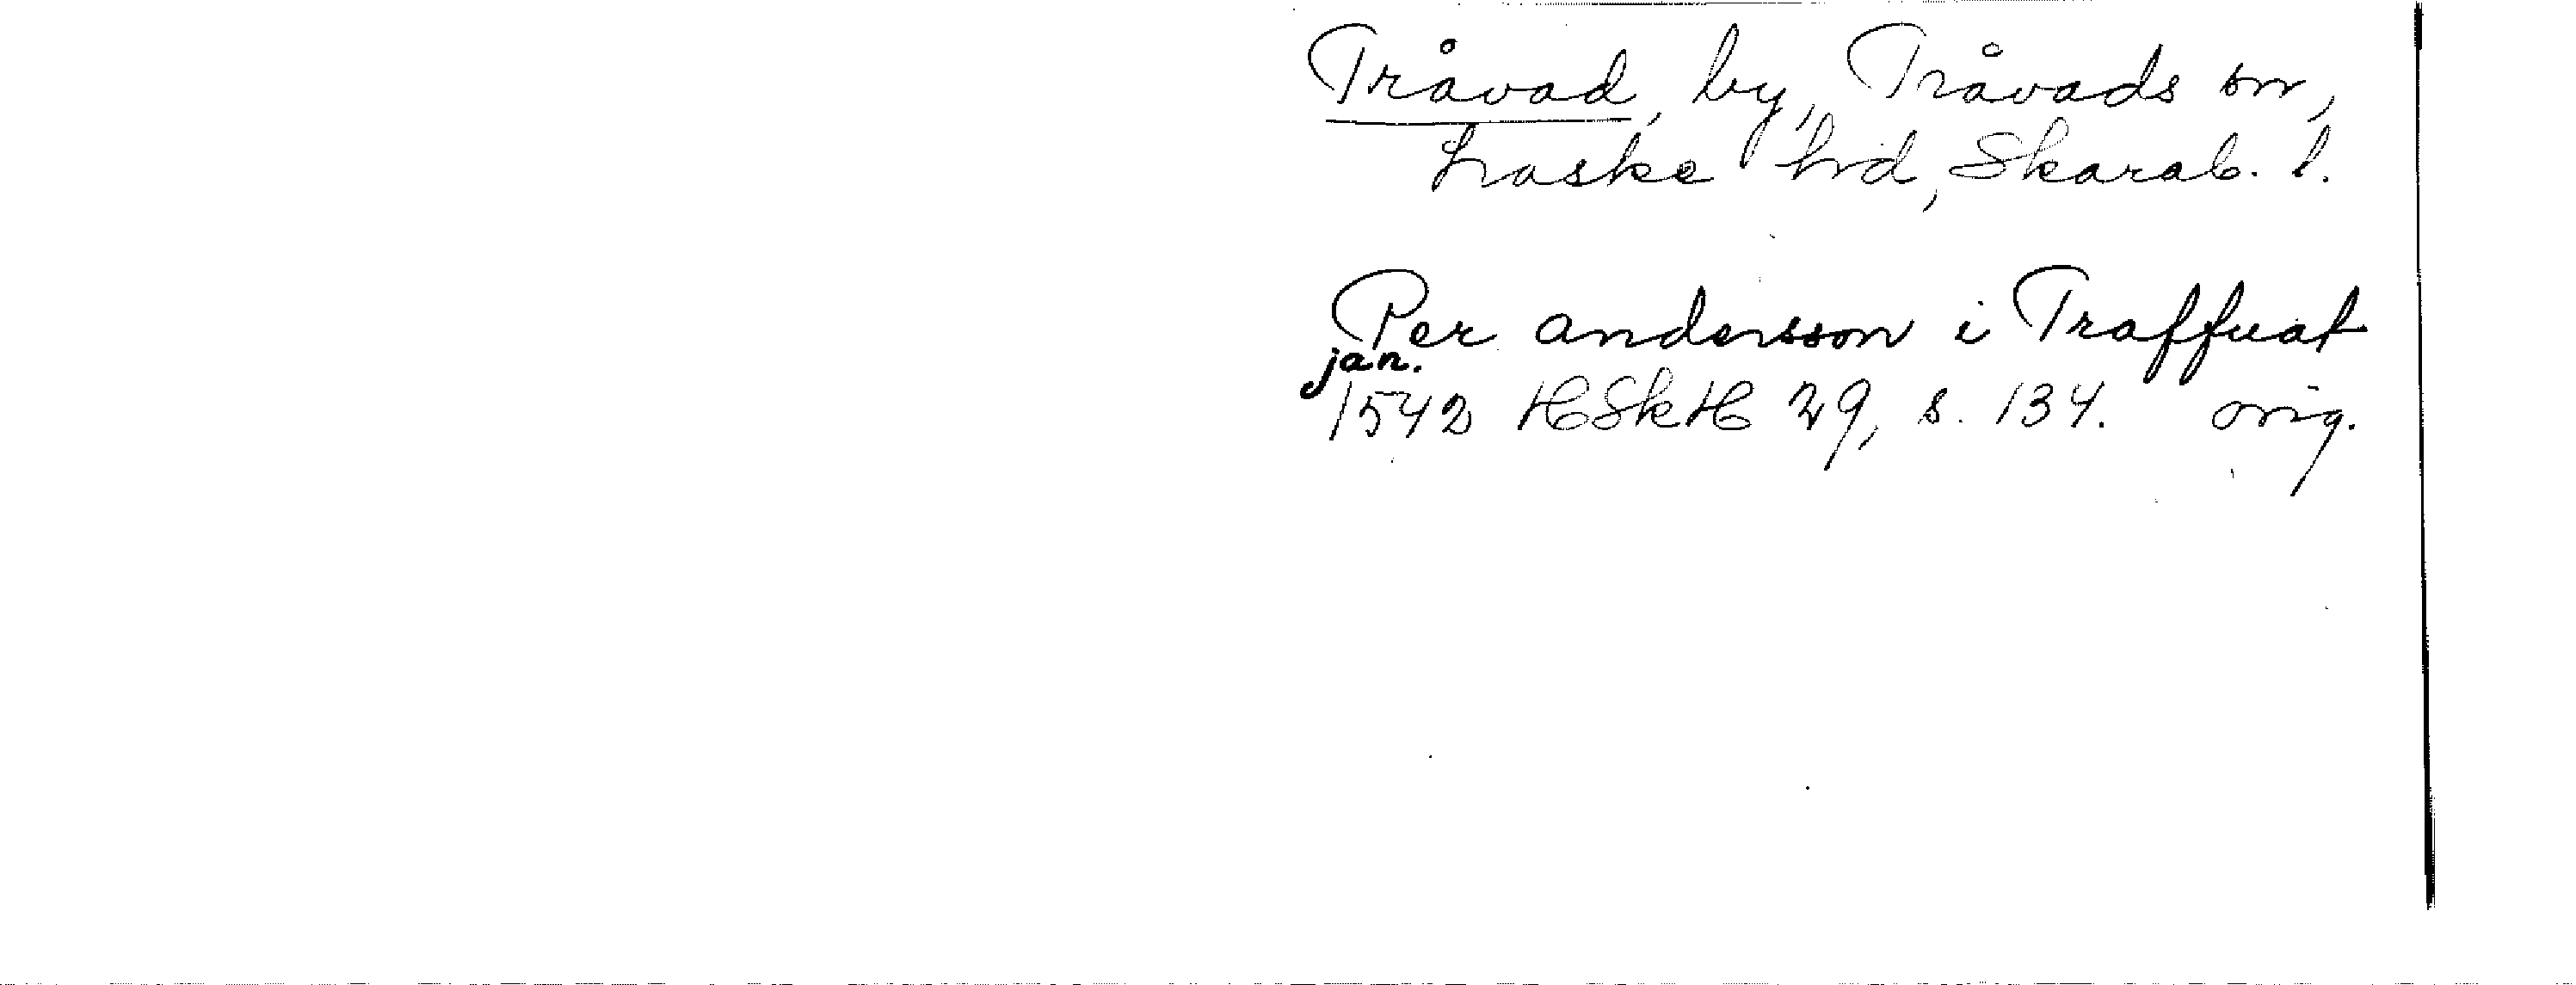 Tråvad, by, Tråvads sn,
Laske hd, Skarab. l.
Per andersson i Traffuat
jan.
1542 HSkH 29, s. 134. orig.